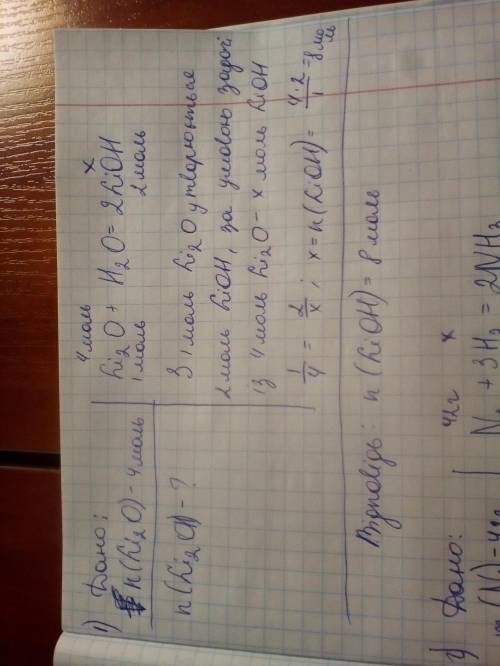 1) Дано:
n(Li₂O) - 4 моль
n(Li₂O) - ?
4 моль x
Li₂O + H₂O = 2LiOH
1 моль 2 моль
З 1 моль Li₂O утворюються
2 моль LiOH, за умовою задачі
із 4 моль Li₂O - x моль LiOH
1/4 = 2/x ; x = n(LiOH) = 4·2/1 = 8 моль
Відповідь: n(LiOH) = 8 моль
Дано:
42г x
N₂ + 3H₂ = 2NH₃